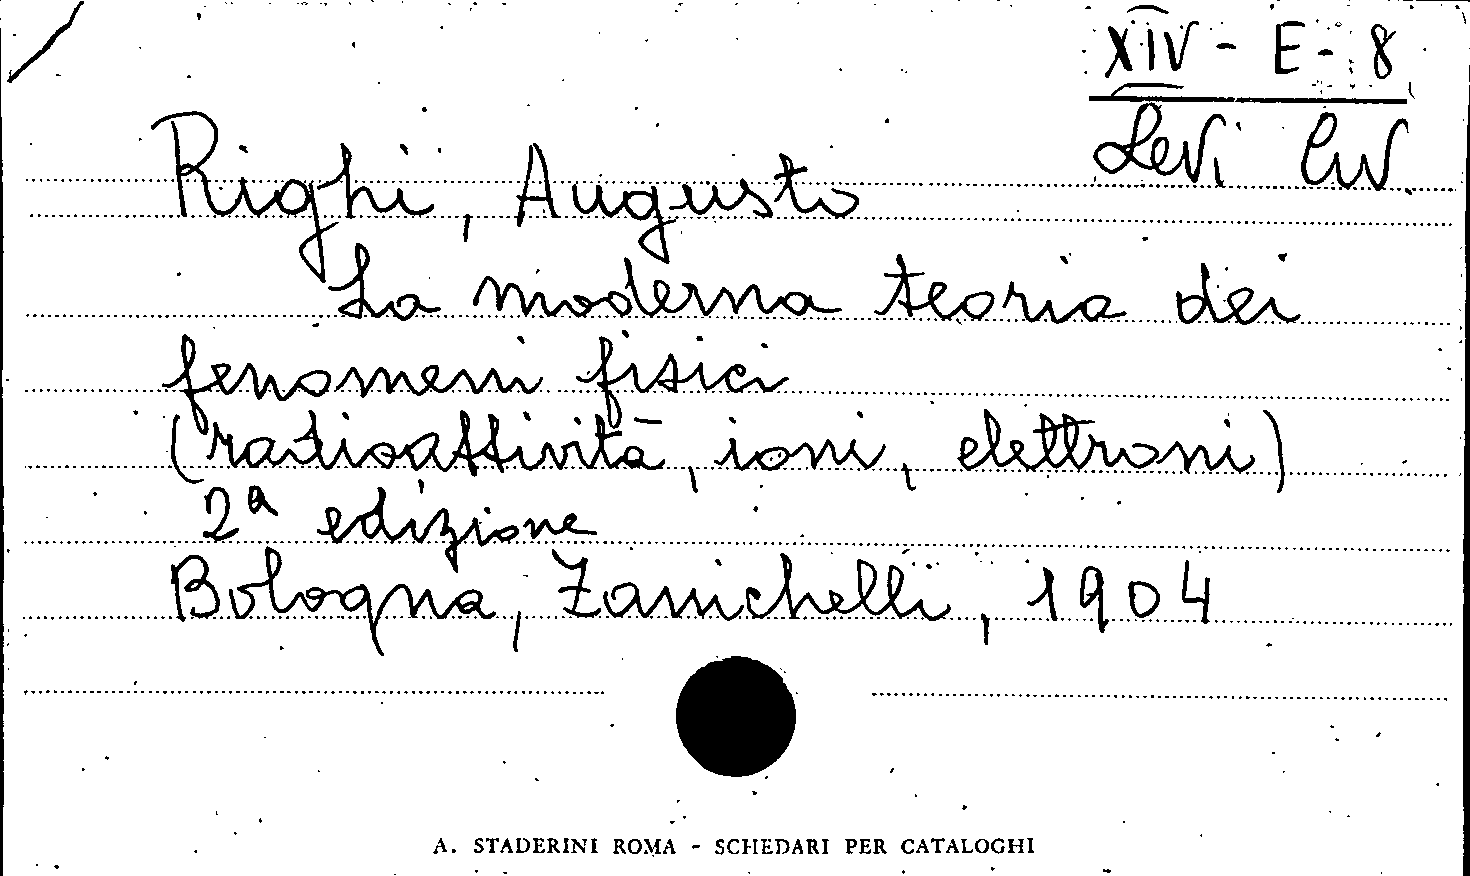 XIV - E - 8
Levi Civ.
Righi, Augusto
La moderna teoria dei
fenomeni fisici
(radioattività, ioni, elettroni)
2ª edizione
Bologna, Zanichelli, 1904
A. STADERINI ROMA - SCHEDARI PER CATALOGHI